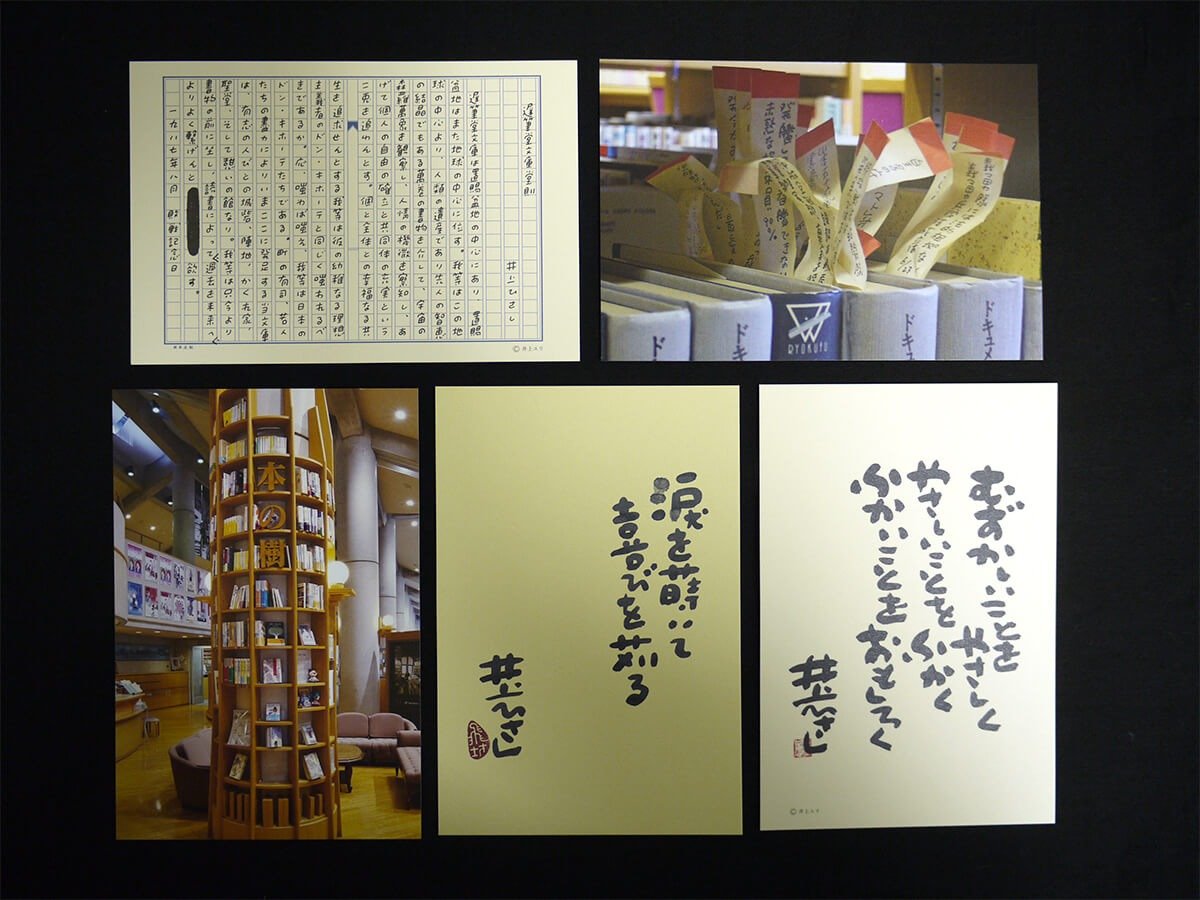 遅筆堂文庫堂則
井上ひさし
遅筆堂文庫は置賜盆地の中心にあり、置賜
盆地はまた地球の中心に位す。我等はこの地
球の中心より、人類の遺産であり先人の智恵
の結晶でもある萬巻の書物を介して、宇宙の
森羅萬象を観察し、人情の機微を察知し、あ
げて個人の自由の確立と共同体の充実という
二兎を追わんとす。個と全体との幸福なる共
生を追求せんとする我等は彼の幼稚なる理想
主義者のドン・キホーテと同じく嗤われるべ
きであるか。応、嗤わば嗤え、我等は日本の
ドン・キホーテたちである。町の有司、若人
たちの盡力によりいまここに発足する当文庫
は、有志の人びとの城砦、陣地、かくれ家、
聖堂、そして憩いの館なり。我等は只今より
書物の前に坐し、読書によって過去を未来へ
よりよく繋げんと欲す。
一九八七年八月 敗戦記念日
©井上ユリ
ド
ドキ
RYOKUYO
ドキュメ
ドキュメ
本の樹
涙を蒔いて
喜びを苅る
井上ひさし
むずかしいことを
やさしく
やさしいことを
ふかく
ふかいことを おもしろく
井上ひさし
©井上ユリ